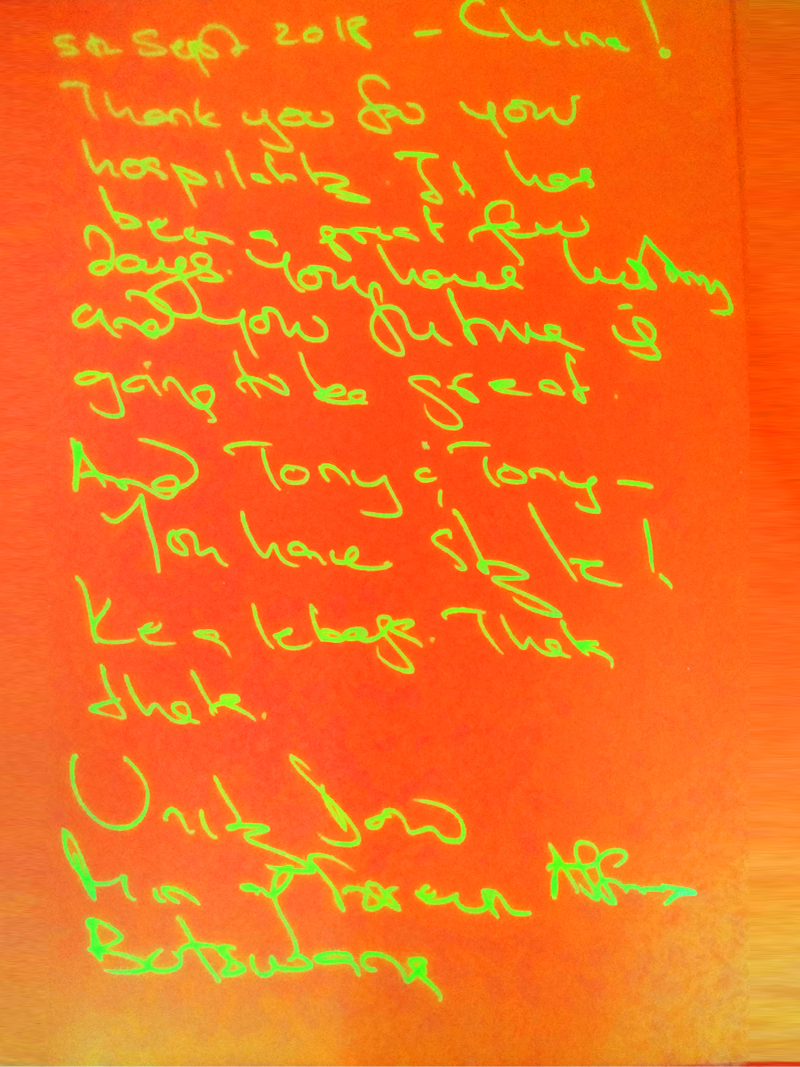 5th Sept 2018 - China!
Thank you for your
hospitality It has
been a great few
days. You have history
and your future is
going to be great.
And Tony & Tony -
You have style!
Ke a leboga. Thek
thek.
Unity Dow
Min of
Botswana